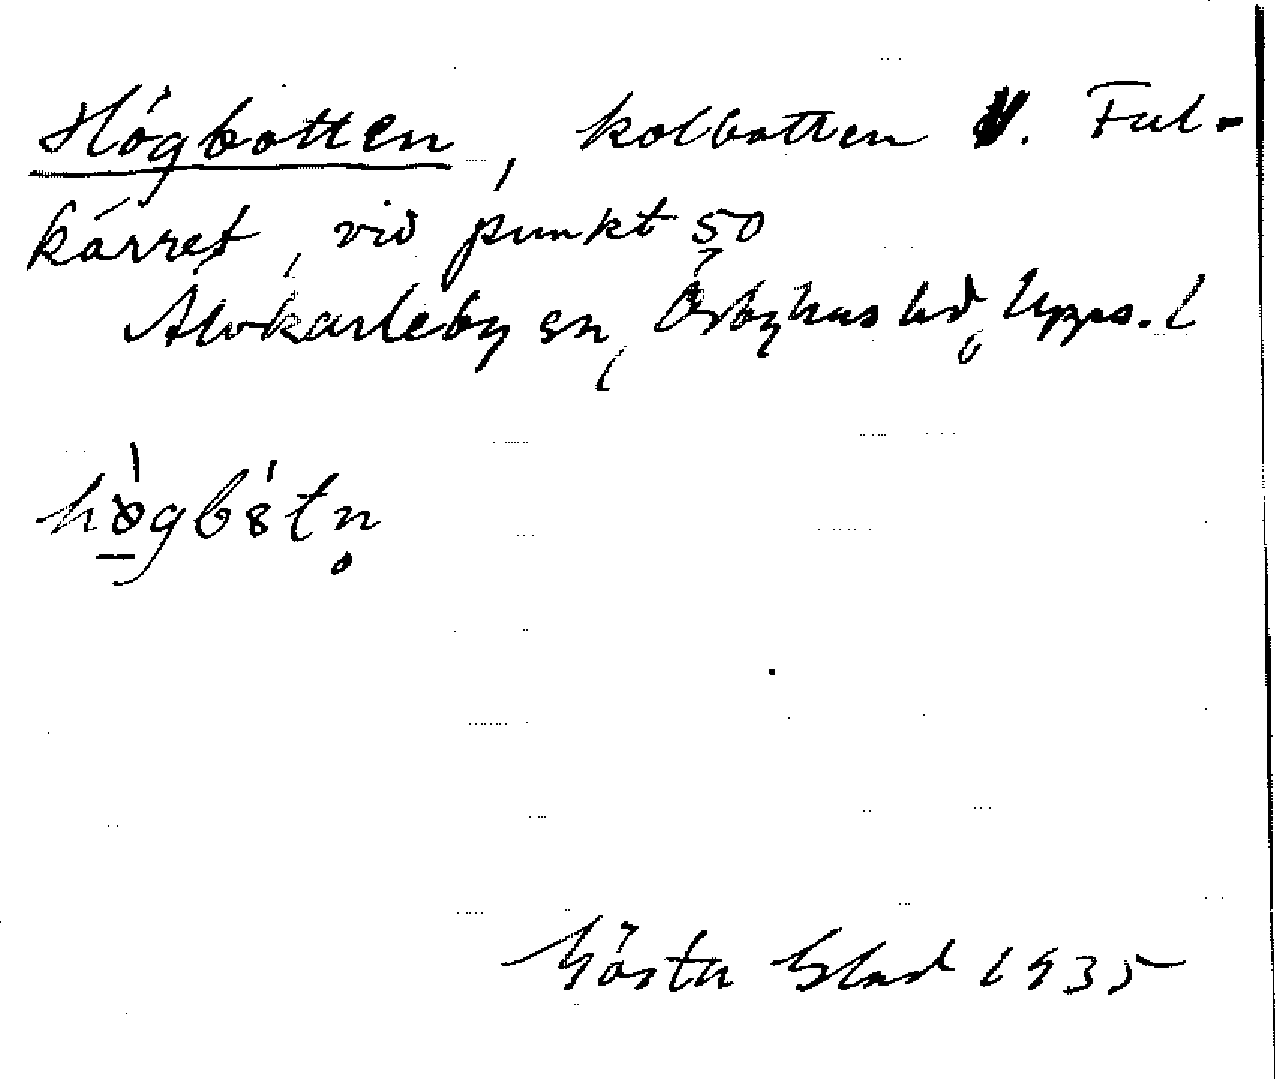 Högbotten, kolbotten V. Ful-
kärret, vid punkt 50
Älvkarleby sn, Örbyhus hd, Upps. l
högbotn
Gösta Blad 1935